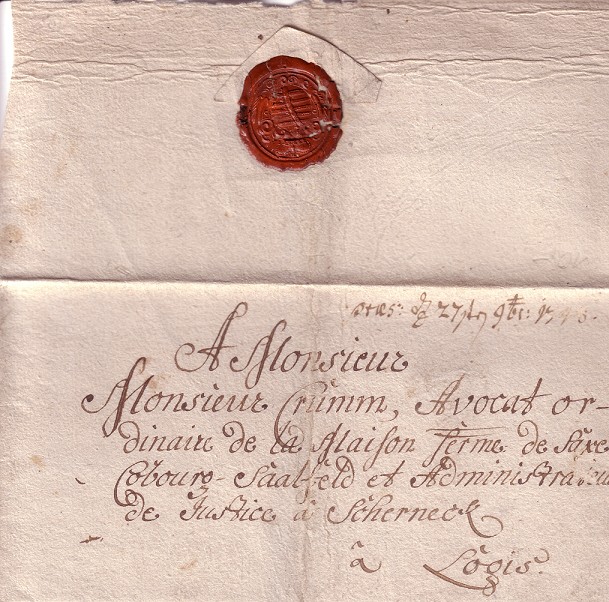 præs: d 27ten 9br: 17
A Monsieur
Monsieur Crümm, Avocat or-
dinaire de la Maison ferme de Saxe
Cobourg-Saalfeld et Administrateu
de Justice à Scherneck
à Logis.